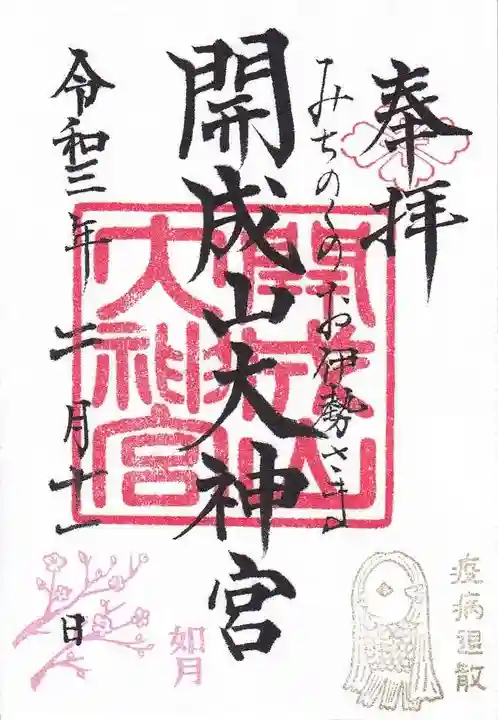 奉拝
みちのくのお伊勢さま
開成山大神宮
開成山
大神宮
令和三年 二月十一日
如月
疫病退散